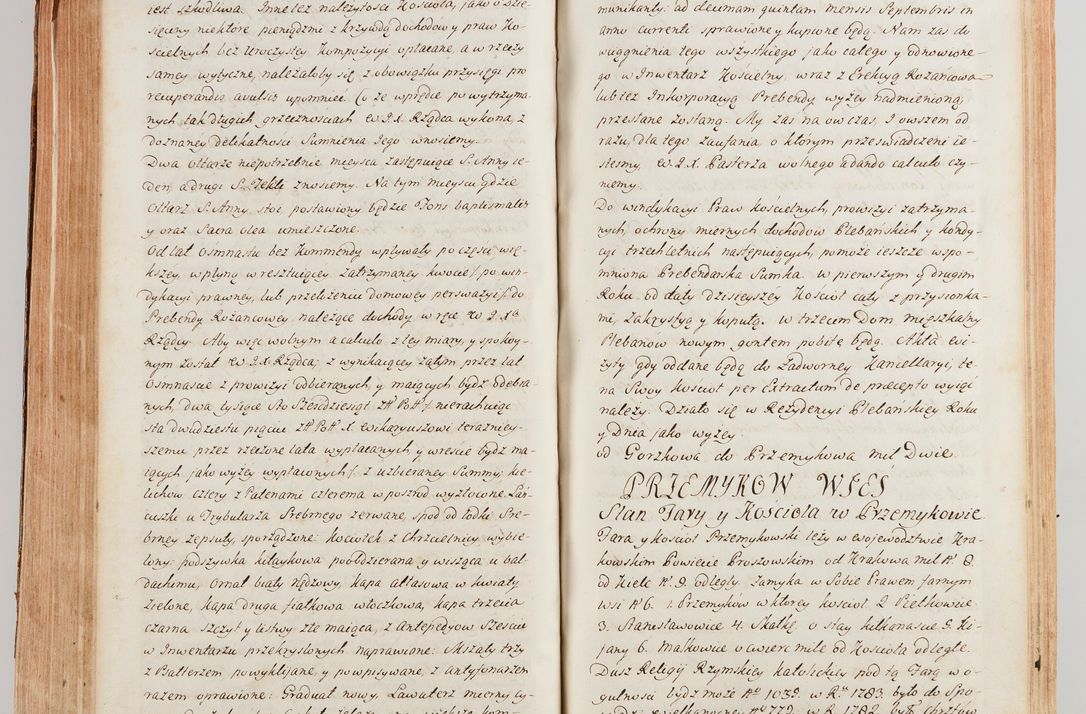 iest szkodliwa. Inne też należytości Kościoła, jako o Dzie-
sięciny niektóre pieniędzmi z krzywdą dochodów y praw Ko-
ścielnych bez Uroczystey Kompozycyi opłacane, a w rzeczy
samey wytyczne, należałoby się z obowiązku przysięgi pro
recuperandis avulsis upomnieć. Co że wprędce po wytrzyma-
nych tak długich grzecznościach W J.X. Rządca wykona, z
doznaney delikatności Sumnienia Jego wnosiemy.
Dwa ołtarze niepotrzebnie mieysca zastępuiące S. Anny ie-
den, a drugi S. Tekli znosiemy. Na tym mieyscu gdzie
Ołtarz S. Anny stoi postawiony będzie Fons baptismalis
y oraz Sacra olea umieszczone.
Od lat Ośmnastu bez Kommendy wpływały po części wię-
kszey, wpłyną w resztuiącey zatrzymaney kwocie / po win-
dykacyi prawney, lub przełożeniu domowey perswazyi / do
Prebendy Rożancowey należące dochody w ręce W J.Xa
Rządcy. Aby więc wolnym a calculo z tey miary, y spokoy-
nym został W J.X. Rządca; z wynikaiącey zatym przez lat
Osmnascie z prowizyi odbieranych y maiących bydź odebra-
nych, dwa tysiące Sto Szesćdziesiąt zł Pol / nierachuiąc
sta dwudziestu pięciu zł Pol X. Wikaryuszowi teraźniey-
szemu przez rzeczone lata wypłacanych, y wreście bydź ma-
iących, jako wyżey wypłaconych / z uzbieraney Summy; kie-
lichow cztery z Patenami czterema w pośrzód wyzłocone. Łań-
cuszki u Trybularza Srebrnego zerwane, spód od łodki Sre-
brney zepsuty, sporządzone: kociołek z Chrzcielnicy wybie-
lony: podszywka kitaykowa poobdzierana y wisząca u bal-
dachimu, Ornat biały nędzowy, kapa atłasowa w kwiaty
zielone, kapa druga fiałkowa włoczkowa, kapa trzecia
czarna szczyt y listwy złe maiąca, z Antepedyow Szesciu
w Inwentarzu przekryślonych naprawione: Mszały trzy
z Psałterzem powyklijane, y powpisywane, z antyfonarzem
razem oprawione: Graduał nowy, Lawaterz mierny cy-

munikanty: ad decimam quintam mensis Septembris in
anno currenti sprawione y kupione będą. Nam zas do
wciągnienia tego wszystkiego jako całego y odnowione-
go w Inwentarz Kościelny, wraz z Erekcyą Rożancową
lub też Inkorporacyą Prebendy wyżey nadmienioną,
przesłane zostaną. My zas na ów czas, I owszem od
razu, dla tego zaufania o którym przeświadczeni ie-
stesmy, W J.X. Pasterza wolnego a dando calculo czy-
niemy.
Do windykacyi Praw kościelnych, prowizyi zatrzyma-
nych, ochrony miernych dochodów Plebańskich y kondy-
cyi trzechletnich następuiących, pomoże ieszcze wspo-
mniona Prebendarska Sumka. w pierwszym y drugim
Roku od daty dzisieyszéy Kościoł cały z przysionka-
mi, Zakrystyą y kopułą, w trzecim Dom mieszkalny
Plebanów nowym gontem pobite będą. Akta wi-
zyty gdy oddane będą do Zadworney Kancellaryi, te-
na Swoy kosciot per Extractum de præcepto wyiąć
należy. Działo się w Rezydencyi Plebańskiey Roku
y Dnia jako wyżey.
od Gorzkowa do Przemykowa mil Dwie.
PRZEMYKOW WIES
Stan Fary y Kościoła w Przemykowie
Fara y kosciół Przemykowski leży w Województwie Kra-
kowskim Powiecie Proszowskim od Krakowa mil No 8.
od Kielc No 9. odległy. Zamyka w Sobie Prawem farnym
wsi No 6. 1. Przemyków w ktorey kościoł. 2. Pietkowice
3. Stanisławowice 4. Skałkę o stay kilkanascie 5. Ki-
jany 6. Małkowie o ćwierć mile od kościoła odległe.
Dusz Religij Rzymskiey katolickiey pod tą Farą w o-
gulności bydź może No 1039. w Ru 1783 było do Spo-